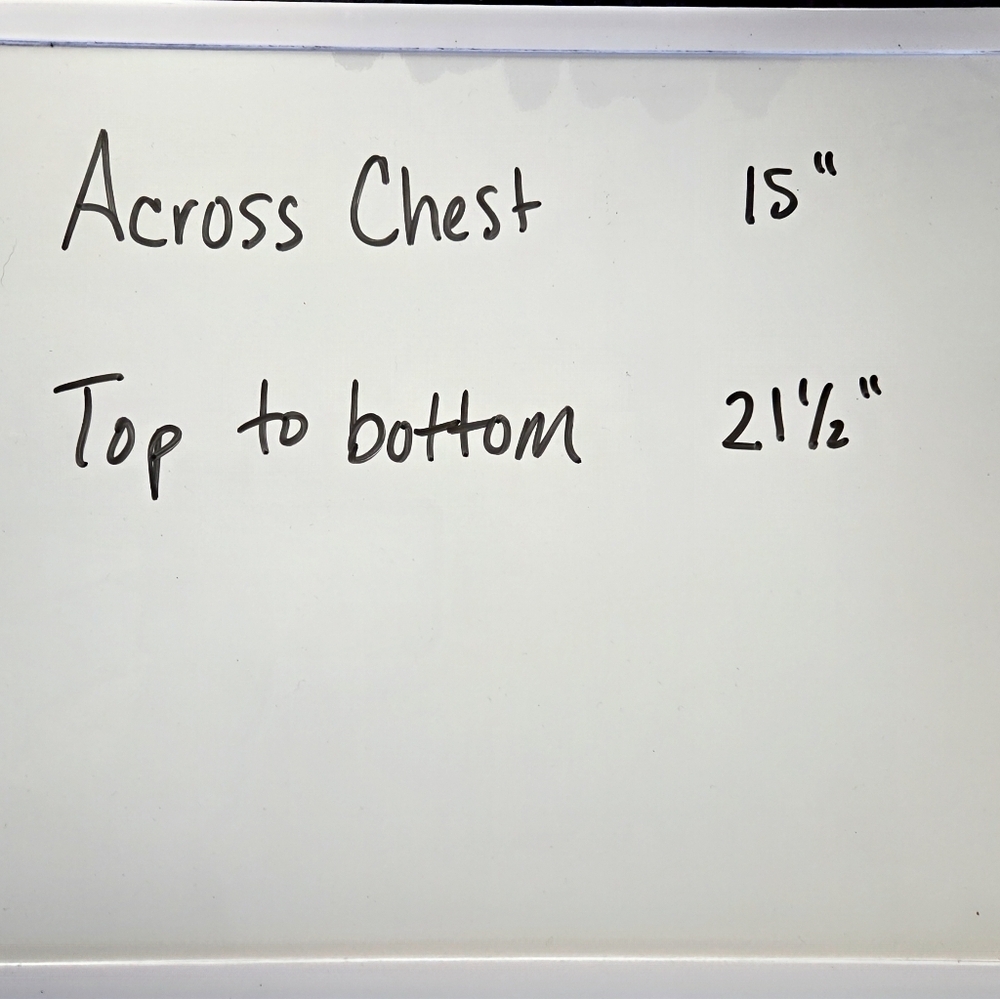 Across Chest 15"
Top to bottom 21 1/2"